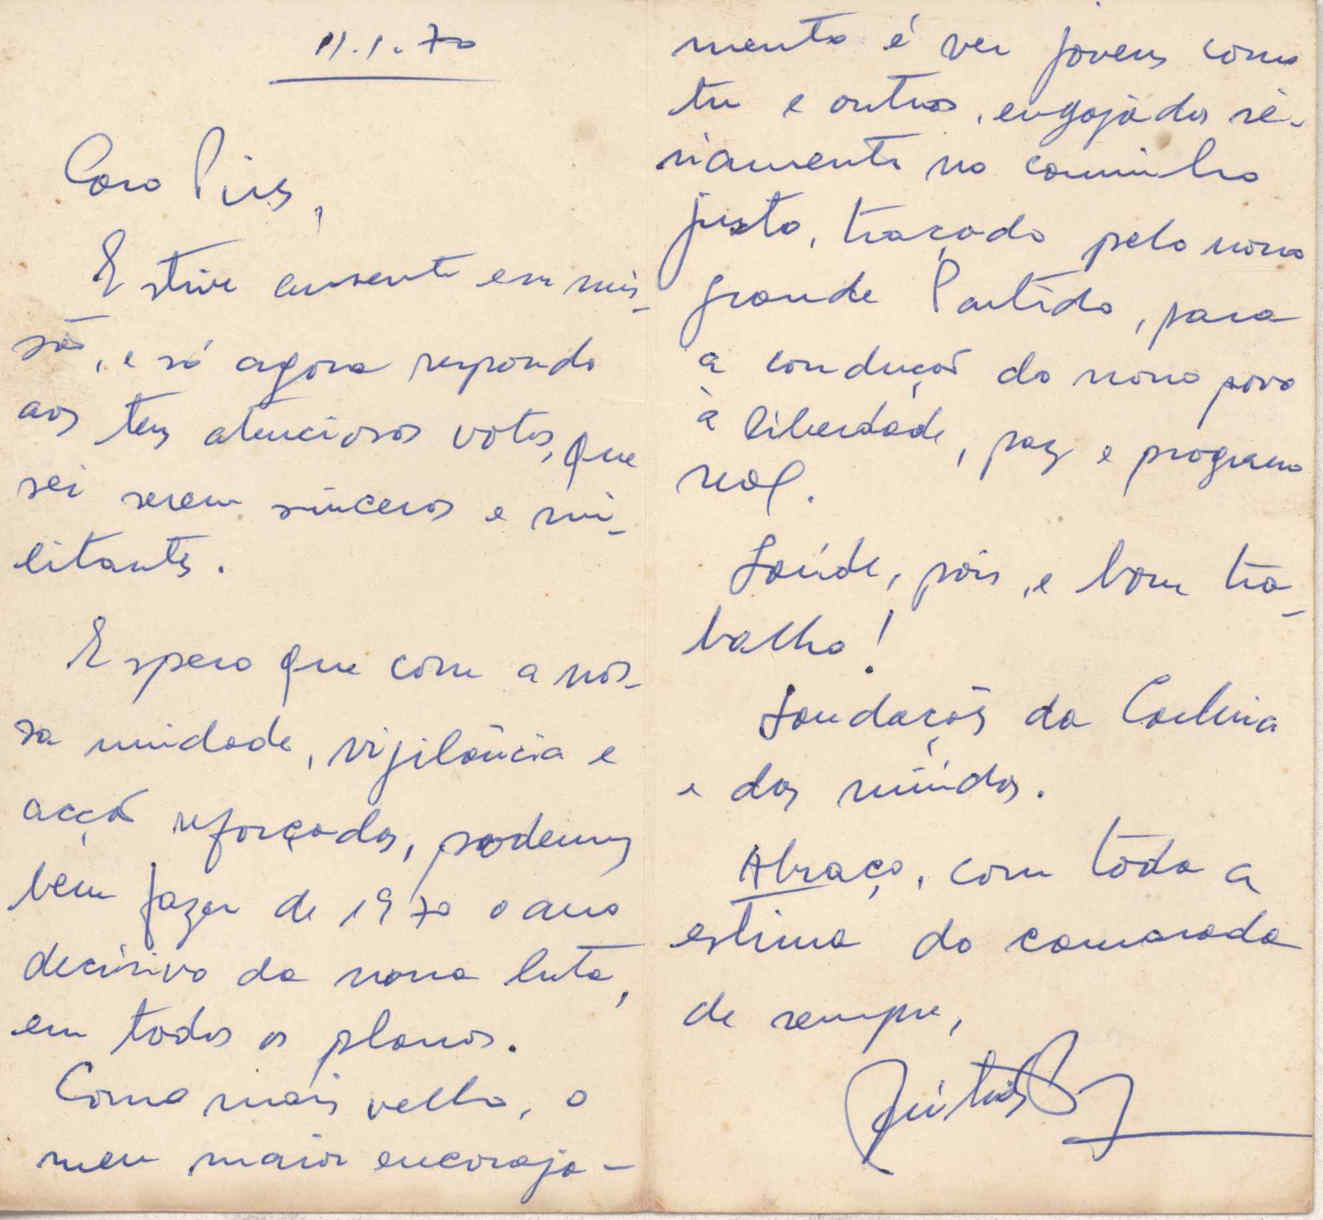 11.1.70
Caro Pires,
Estive ausente em mis-
são, e só agora respondo
aos teus atenciosos votos, que
sei serem sinceros e mi-
litantes.
Espero que com a nos-
sa unidade, vigilância e
acção reforçadas, podemos
bem fazer de 1970 o ano
decisivo da nossa luta,
em todos os planos.
Como mais velho, o
meu maior encoraja-
mento é ver jovens como
tu e outros, engajados sé-
riamente no caminho
justo, traçado pelo nosso
grande Partido, para
a condução do nosso povo
à liberdade, paz e progresso
real.
Saúde, pois, e bom tra-
balho!
Saudações da
e dos miúdos.
Abraço, com toda a
estima do camarada
de sempre,